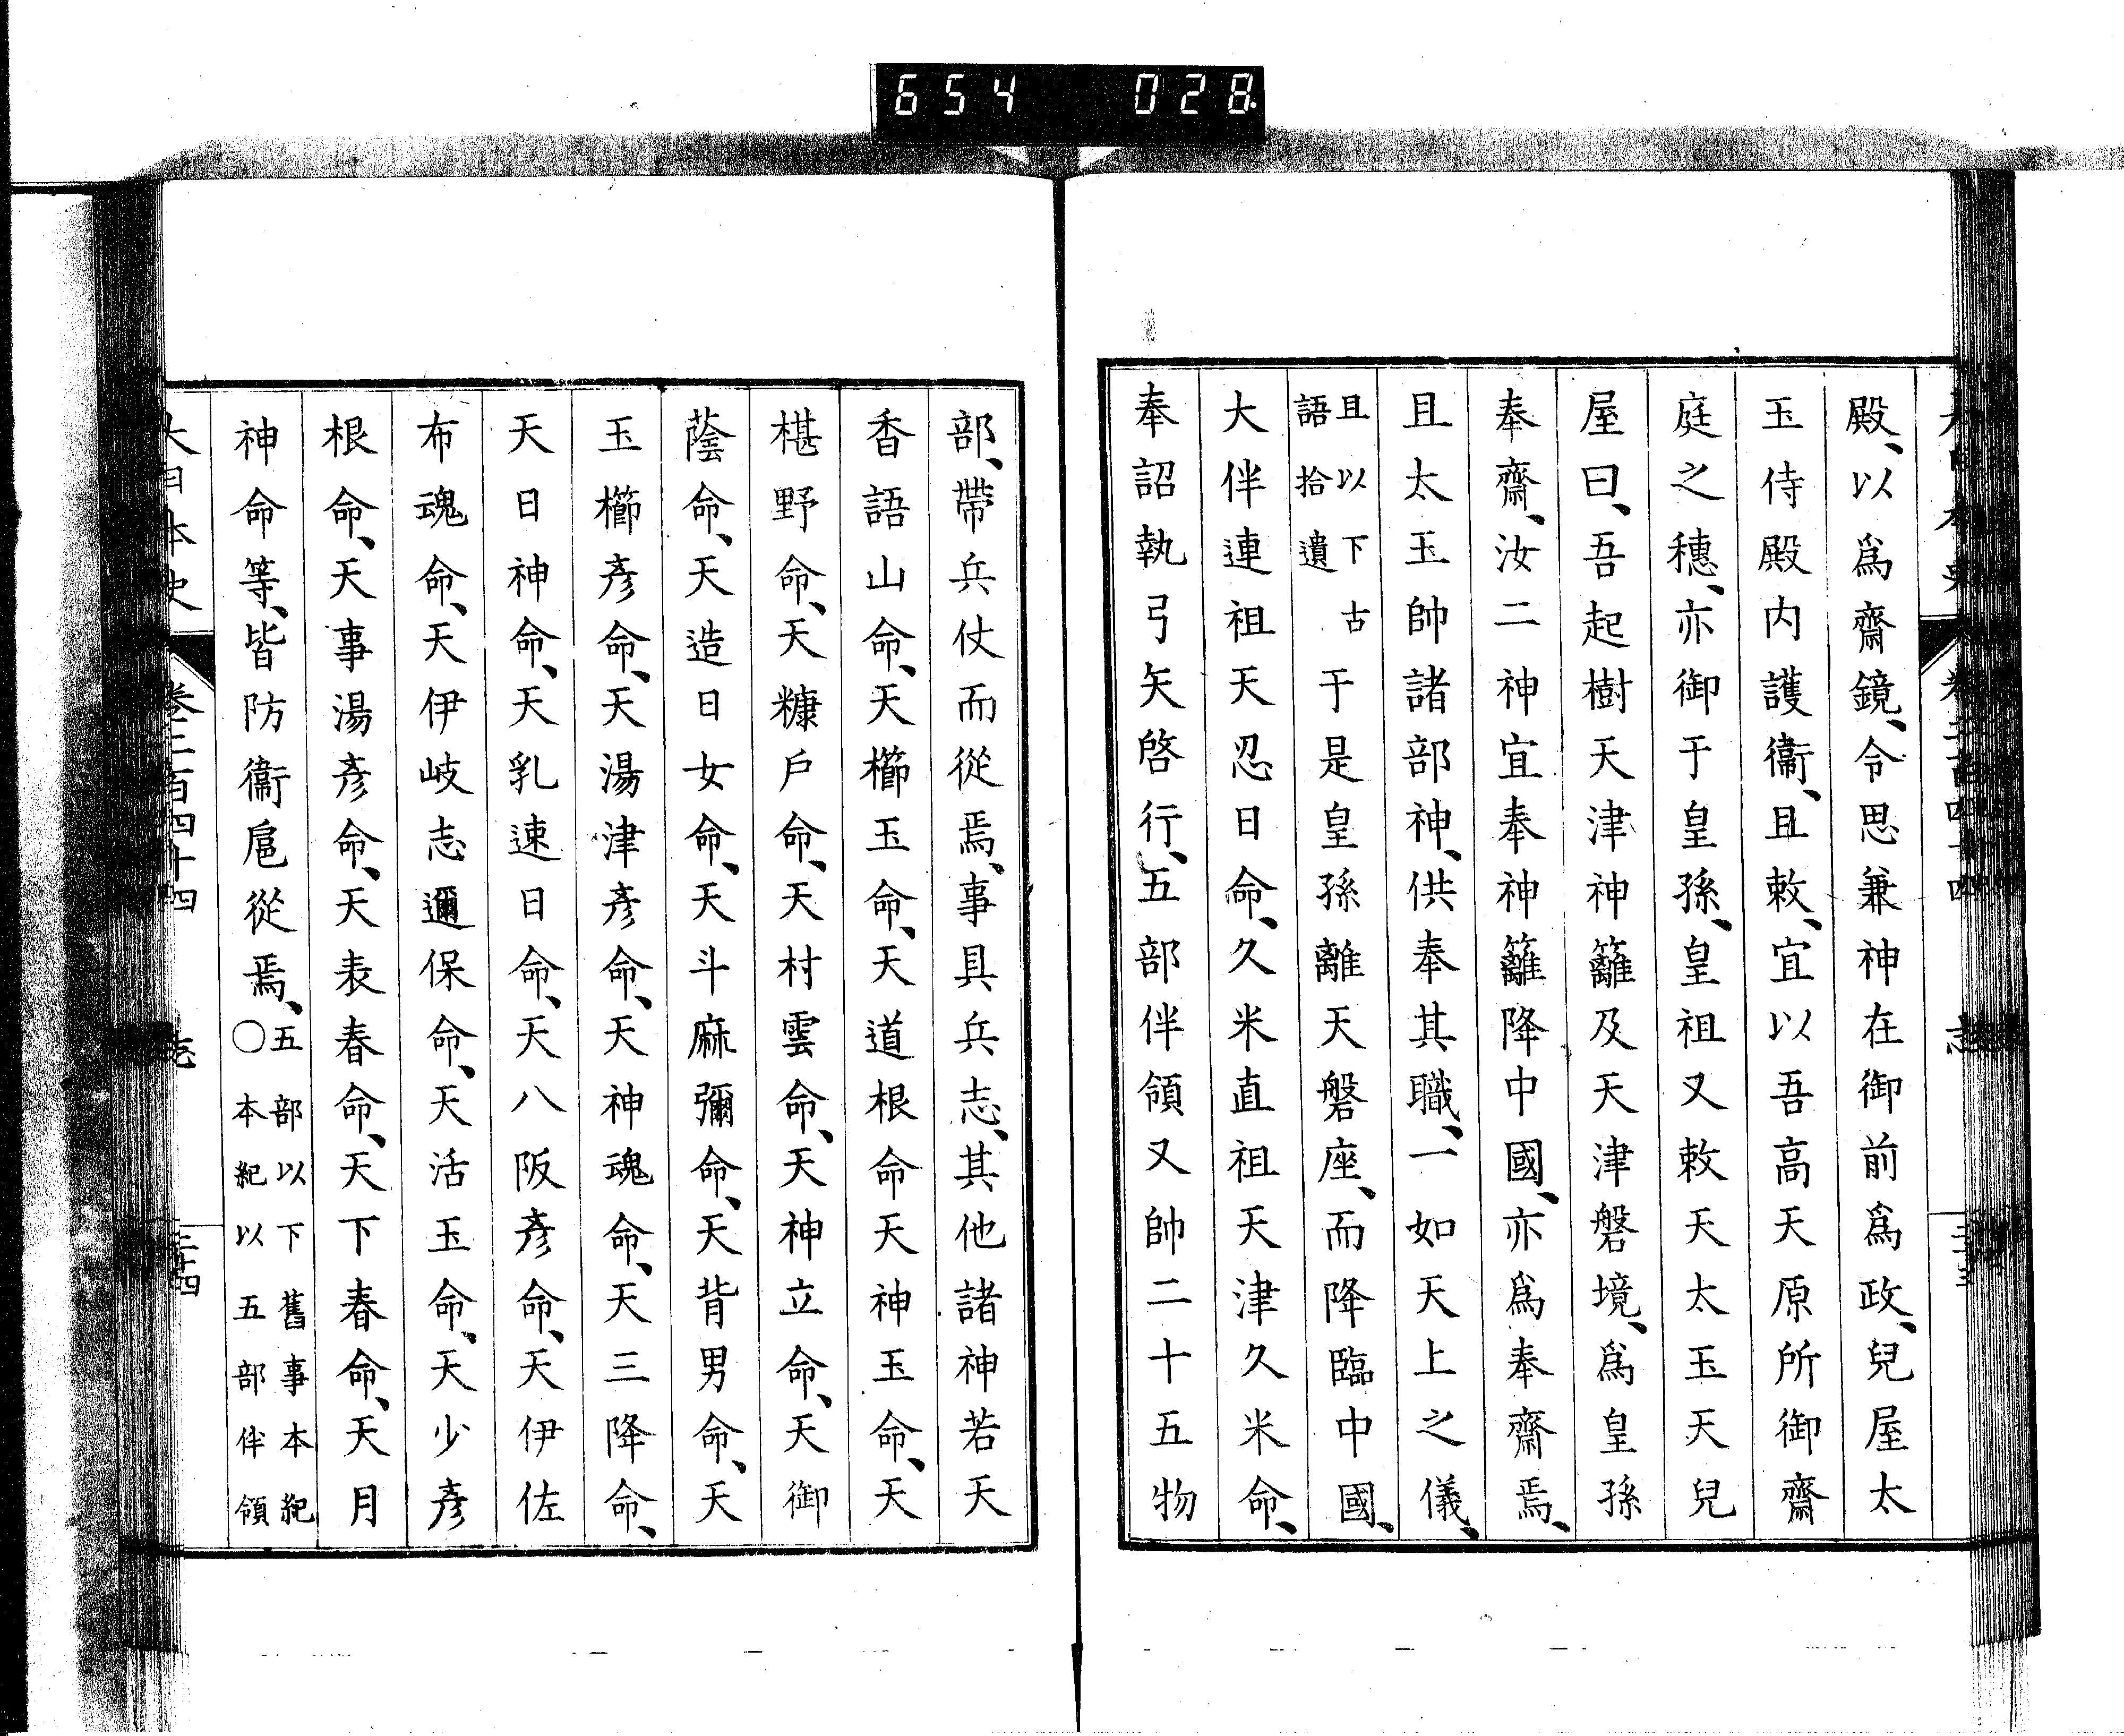 654 028
殿、以爲齋鏡、令思兼神在御前爲政、兒屋太
玉侍殿内護衞、且敕、宜以吾高天原所御齋
庭之穗、亦御于皇孫、皇祖又敕天太玉天兒
屋曰、吾起樹天津神籬及天津磐境、爲皇孫
奉齋、汝二神宜奉神籬降中國、亦爲奉齋焉、
且太玉帥諸部神、供奉其職、一如天上之儀、
且以下古
語拾遺
于是皇孫離天磐座、而降臨中國、
大伴連祖天忍日命、久米直祖天津久米命、
奉詔執弓矢啓行、五部伴領又帥二十五物
部、帶兵仗而從焉、事具兵志、其他諸神若天
香語山命、天櫛玉命、天道根命天神玉命、天
椹野命、天糠戶命、天村雲命、天神立命、天御
蔭命、天造日女命、天斗麻彌命、天背男命、天
玉櫛彥命、天湯津彥命、天神魂命、天三降命、
天日神命、天乳速日命、天八阪彥命、天伊佐
布魂命、天伊岐志邇保命、天活玉命、天少彥
根命、天事湯彥命、天表春命、天下春命、天月
神命等、皆防衞扈從焉、
五部以下舊事本紀
〇本紀以五部伴領
大日本史 卷二百四十四 志 二十四